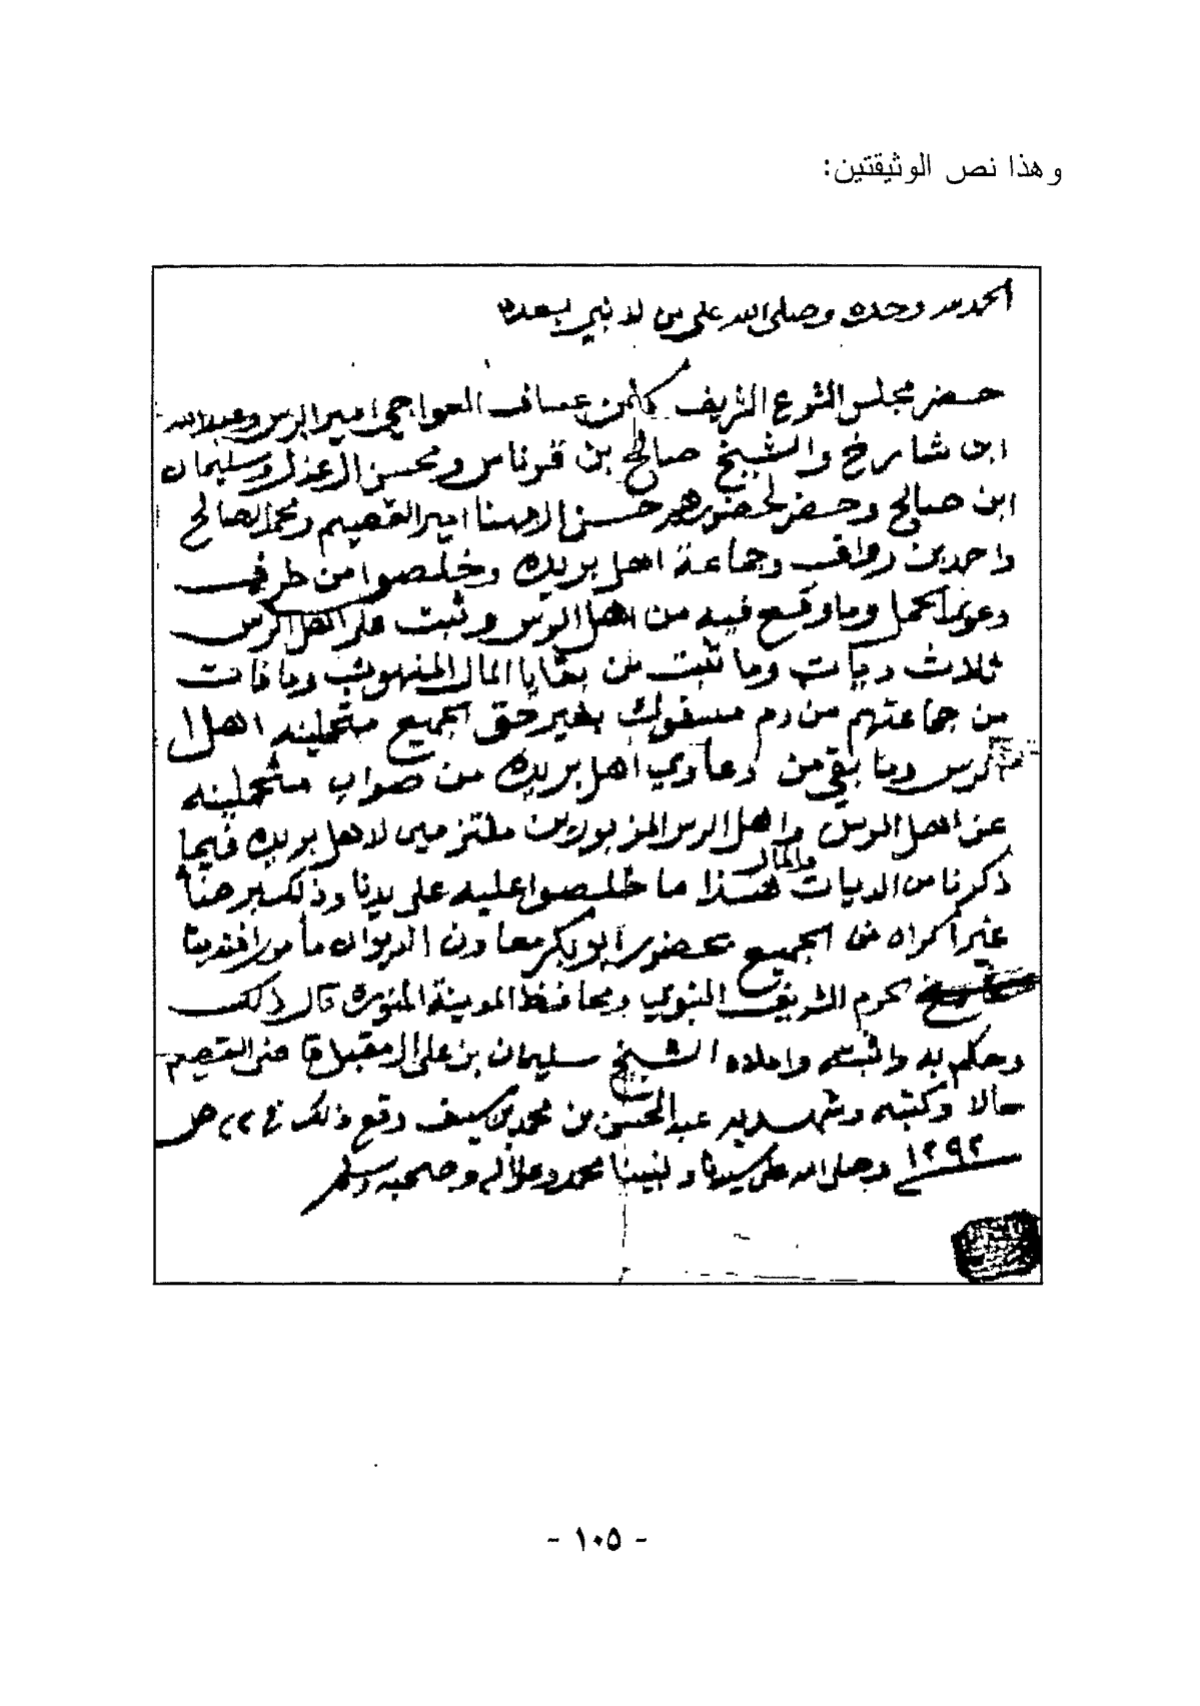 وهذا نص الوثيقتين:
الحمد لله وحده وصلى الله على من لا نبي بعده
حضر مجلس الشرع الشريف كل من عساف العواجي امير الرس وعبدالله
ابن شارخ والشيخ صالح بن قرناس ومحسن العذل وسليمان
ابن صالح وحضر لحضورهم حسن المهنا امير القصيم ومحمد الصالح
واحمد بن رواف وجماعة اهل بريده وخلصوا من طرف
دعوة الحمل وما وقع فيه من اهل الرس وثبت على اهل الرس
ثلاث ديات وما ثبت من بقايا المال المنهوب وما فات
من جماعتهم من دم مسفوك بغير حق الجميع متحملينه اهل ا
لرس وما بقي من دعاوي اهل بريده من صواب متحملينه
عن اهل الرس واهل الرس المزبورين ملتزمين لاهل بريده فيما
ذكرنا من الديات والمال هذا ما خلصوا عليه على يدنا وذلك برضا
غير اكراه من الجميع بحضور ابو بكر معاون الديوان مأمور افندينا
الحرم الشريف النبوي ومحافظ المدينة المنوره قال ذلك
وحكم به واثبته واملاه الشيخ سليمان بن علي المقبل قاضي القصيم
حالا وكتبه وشهد به عبدالمحسن بن محمد بن سيف وقع ذلك في ٢٢ ص
١٢٩٢ وصلى الله على سيدنا ونبينا محمد وعلى اله وصحبه وسلم
- ١٠٥ -